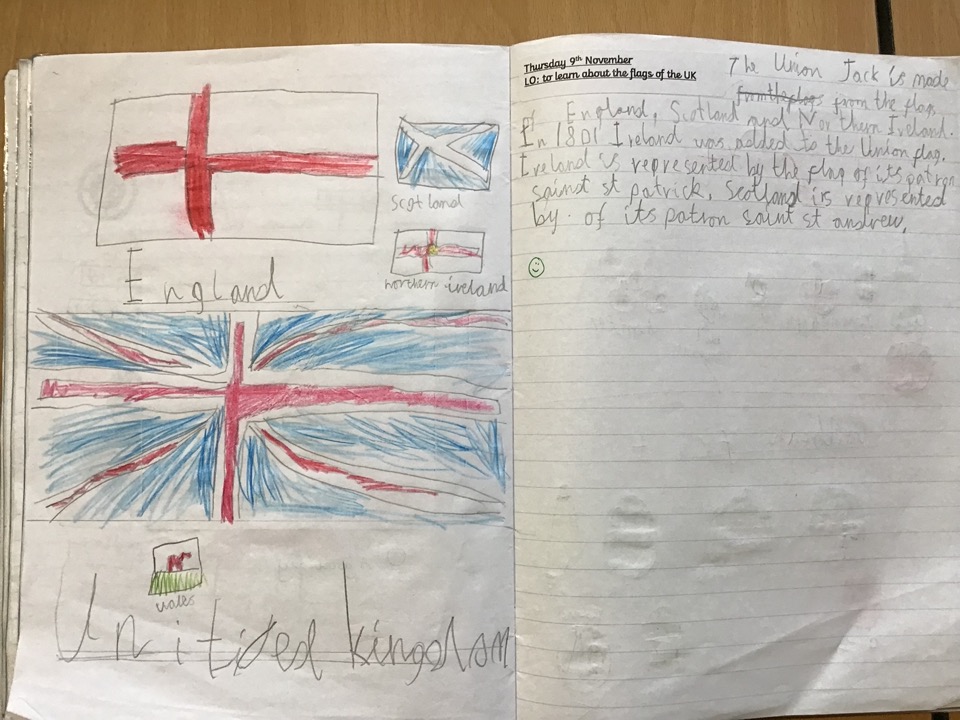 England
Scotland
northern ireland
wales
Unitied kingdom
Thursday 9th November
LO: to learn about the flags of the UK
The Union Jack is made
from the flags from the flag
of England, Scotland and Northern Ireland.
In 1801 Ireland was added to the Union flag.
Ireland is represented by the flag of its patron
saind st patrick, Scotland is represented
by. of its patron saint st andrew,